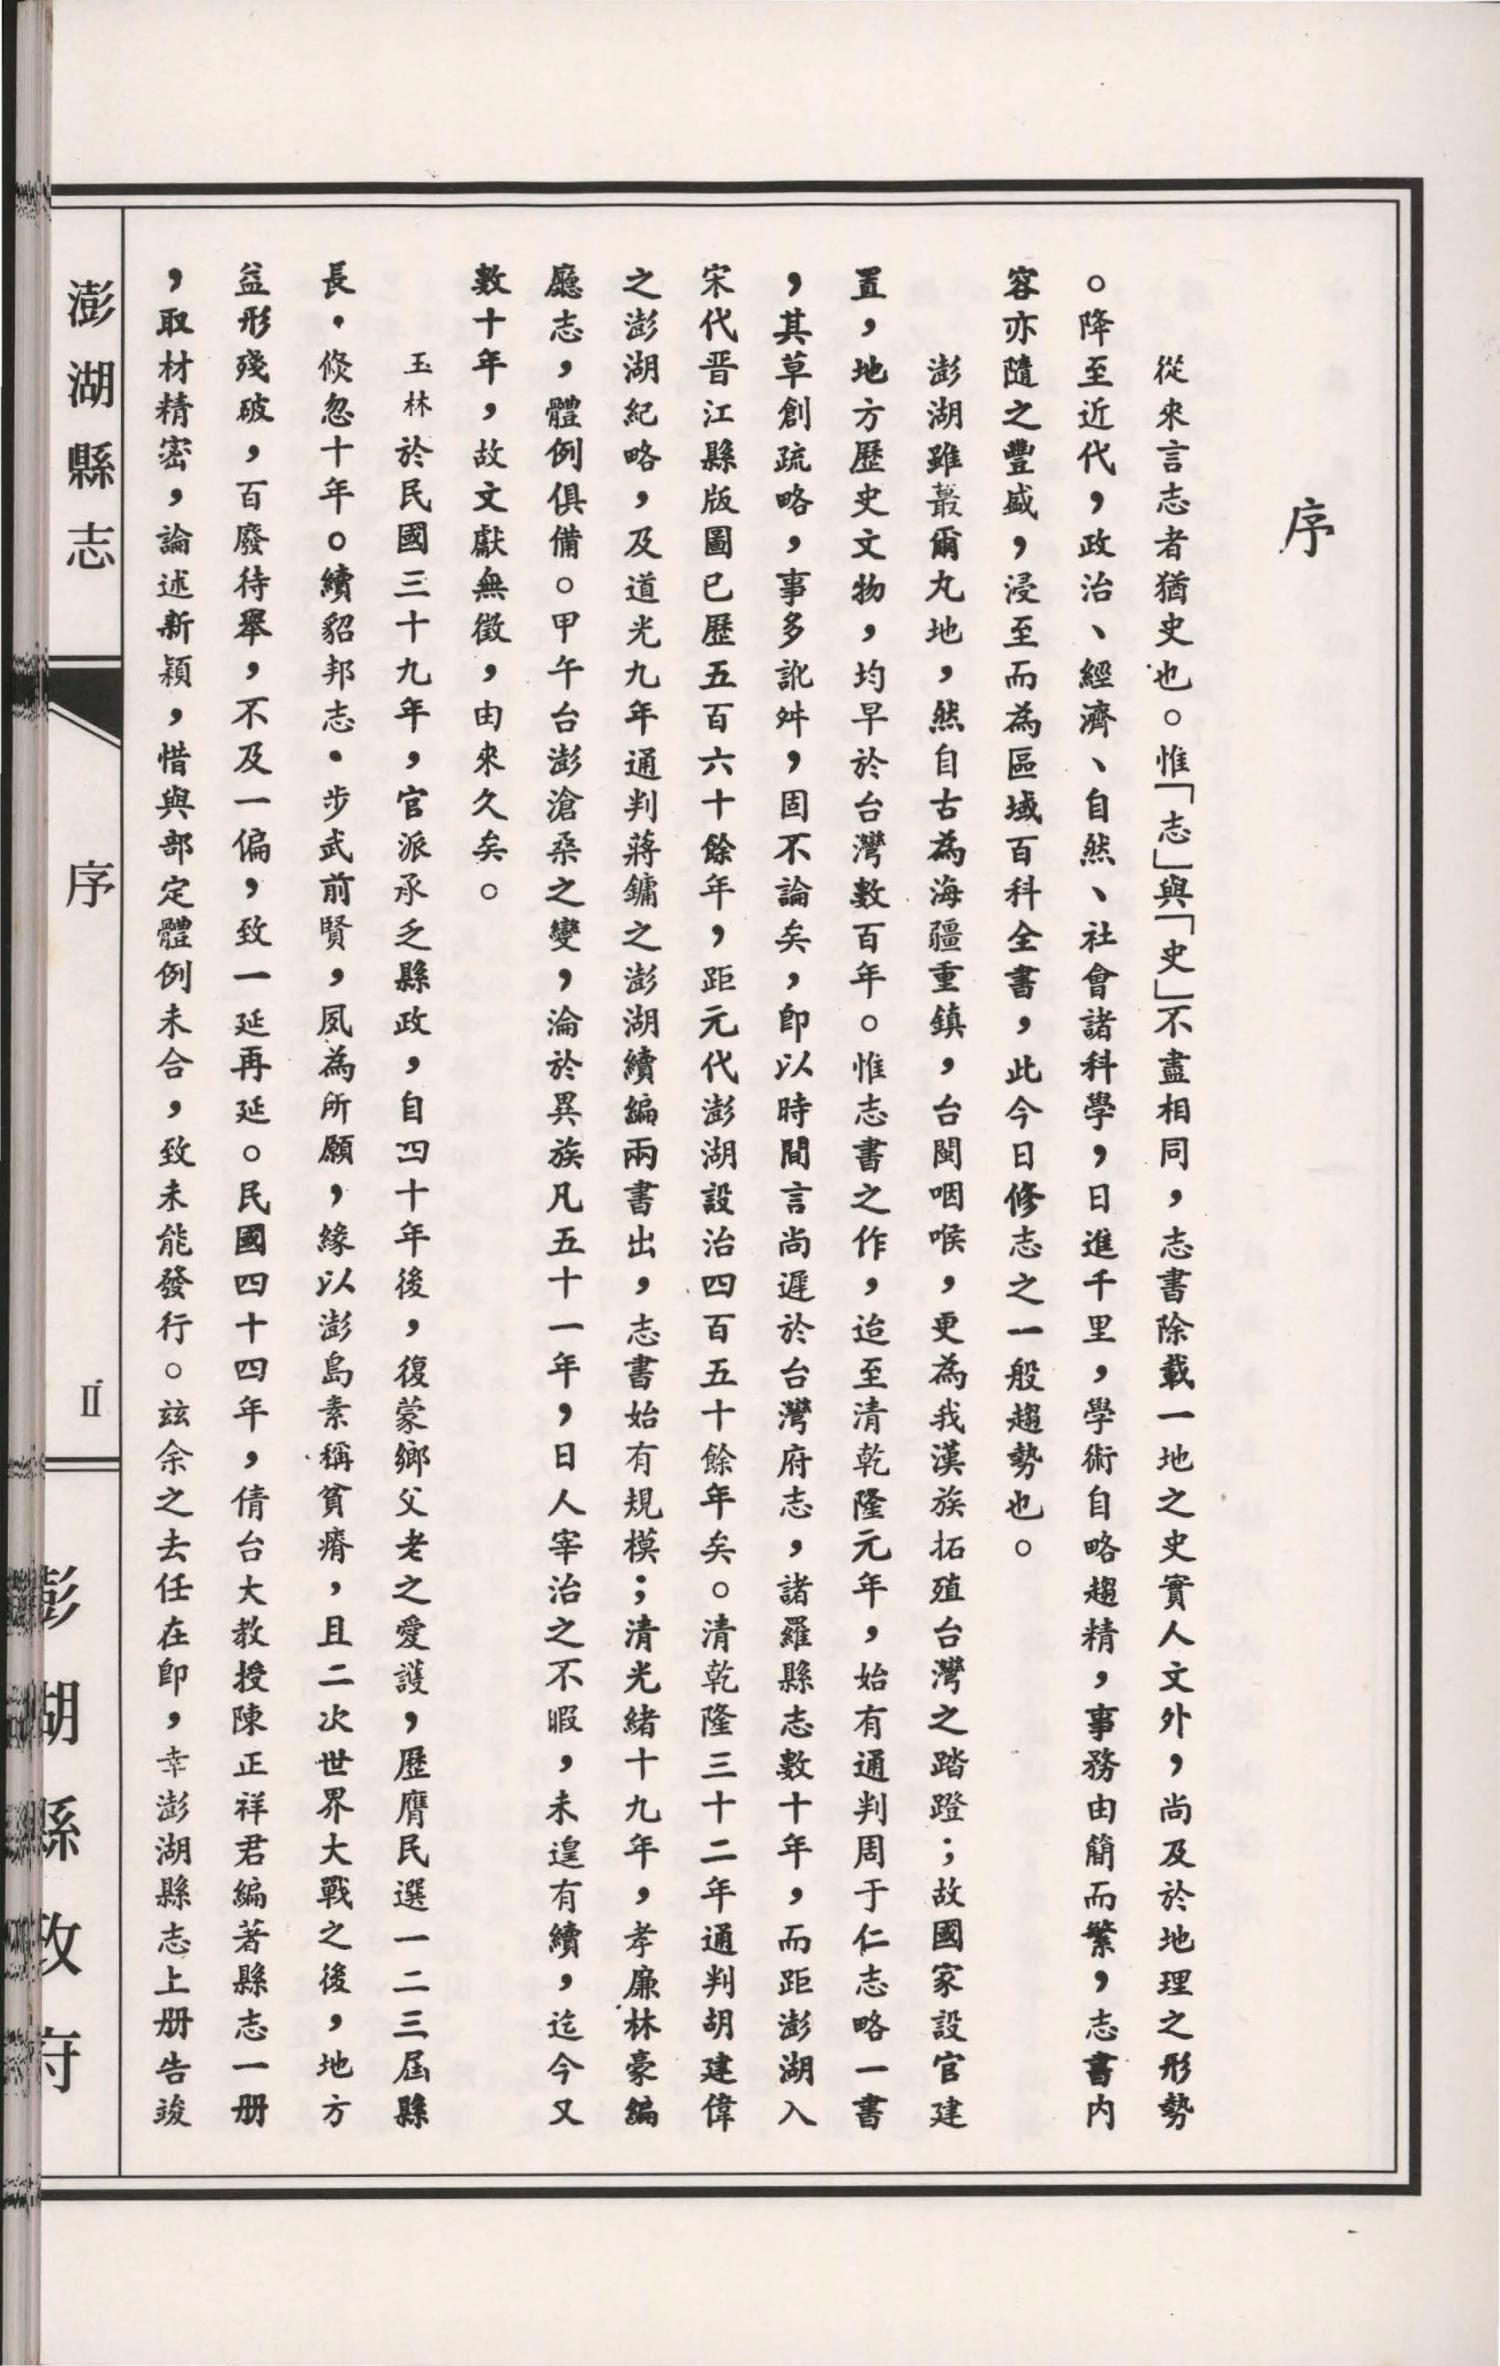 序
從來言志者猶史也。惟「志」與「史」不盡相同，志書除載一地之史實人文外，尚及於地理之形勢
。降至近代，政治、經濟、自然、社會諸科學，日進千里，學術自略趨精，事務由簡而繁，志書內
容亦隨之豐盛，浸至而為區域百科全書，此今日修志之一般趨勢也。
澎湖雖蕞爾丸地，然自古為海疆重鎮，台閩咽喉，更為我漢族拓殖台灣之踏蹬；故國家設官建
置，地方歷史文物，均早於台灣數百年。惟志書之作，迨至清乾隆元年，始有通判周于仁志略一書
，其草創疏略，事多訛舛，固不論矣，卽以時間言尚遲於台灣府志，諸羅縣志數十年，而距澎湖入
宋代晉江縣版圖已歷五百六十餘年，距元代澎湖設治四百五十餘年矣。清乾隆三十二年通判胡建偉
之澎湖紀略，及道光九年通判蔣鏞之澎湖續編兩書出，志書始有規模；清光緒十九年，孝廉林豪編
廳志，體例俱備。甲午台澎滄桑之變，淪於異族凡五十一年，日人宰治之不暇，未遑有續，迄今又
數十年，故文獻無徵，由來久矣。
玉林於民國三十九年，官派承乏縣政，自四十年後，復蒙鄉父老之愛護，歷膺民選一二三屆縣
長．倏忽十年。續貂邦志．步武前賢，夙為所願，緣以澎島素稱貧瘠，且二次世界大戰之後，地方
益形殘破，百廢待舉，不及一偏，致一延再延。民國四十四年，倩台大教授陳正祥君編著縣志一册
，取材精密，論述新穎，惜與部定體例未合，致未能發行。茲余之去任在卽，幸澎湖縣志上册告竣
澎湖縣志
序
II
澎湖縣政府